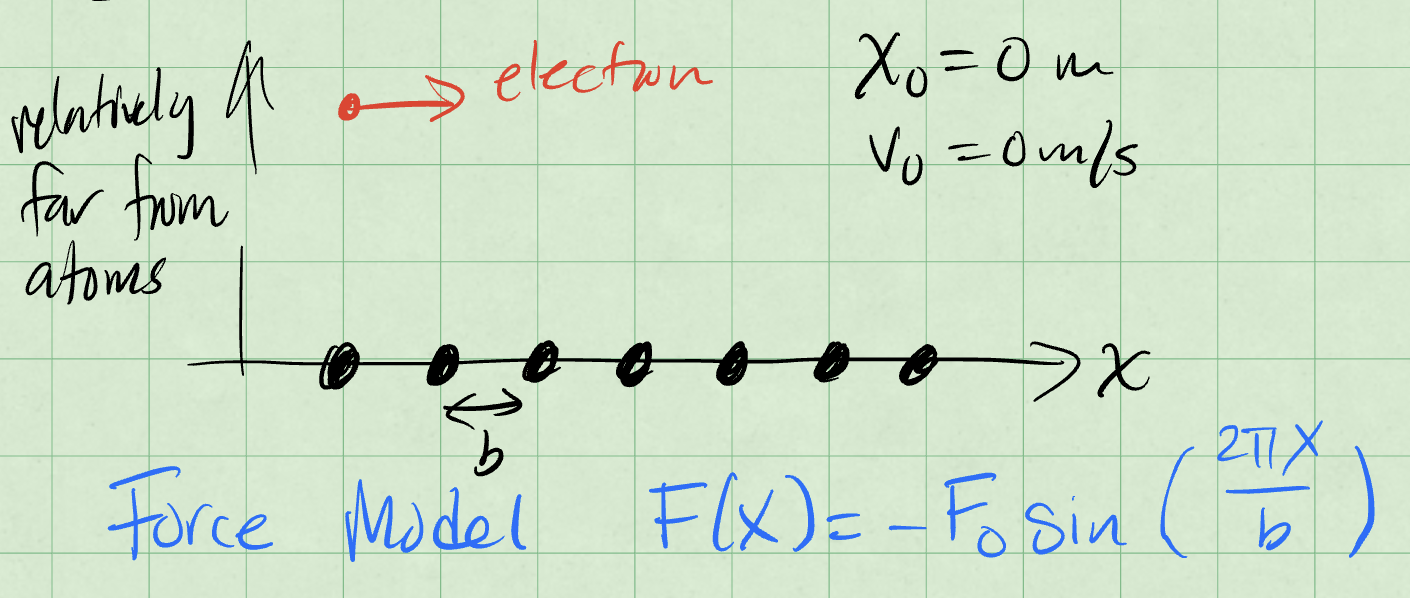 relatively
far from
atoms
electron
x₀ = 0 m
v₀ = 0 m/s
x
b
Force Model F(x) = -F₀ sin (2πx/b)